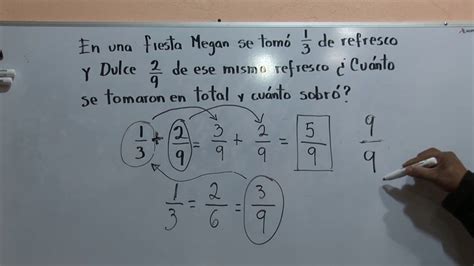 En una fiesta Megan se tomó 1/3 de refresco
y Dulce 2/9 de ese mismo refresco ¿Cuánto
se tomaron en total y cuánto sobró?
1/3 + 2/9 = 3/9 + 2/9 = 5/9 9/9
1/3 = 2/6 = 3/9